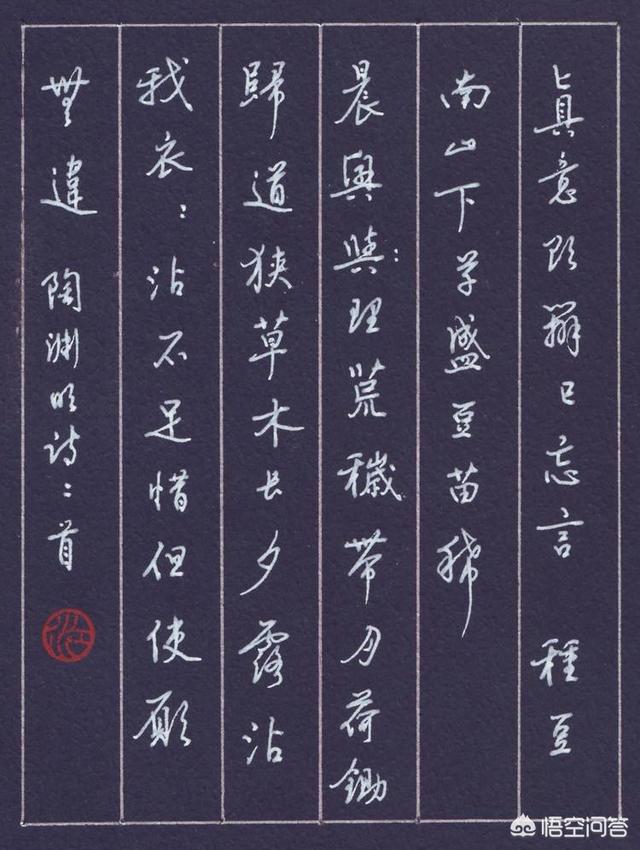 眞意欲辨已忘言 種豆
南山下草盛豆苗稀
晨興與：理荒穢帶月荷鋤
歸道狹草木長夕露沾
我衣：沾不足惜但使願
無違 陶渊明诗：首
悟空问答